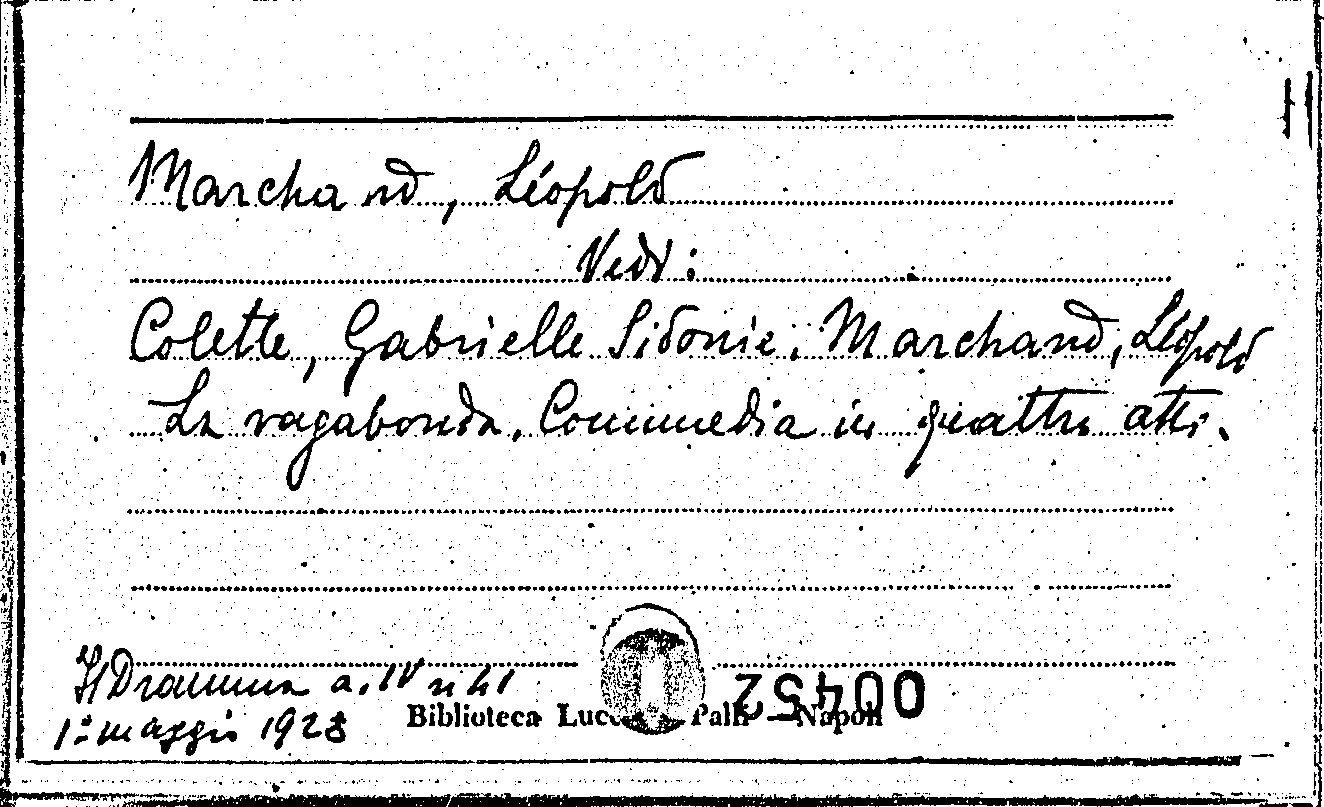 Marchand, Léopold
Vedi:
Colette, Gabrielle Sidonie; Marchand, Léopold
La vagabonda. Commedia in quattro atti.
Il Dramma a. IV n. 41
1° maggio 1928
Biblioteca Lucchesi Palli — Napoli
00452